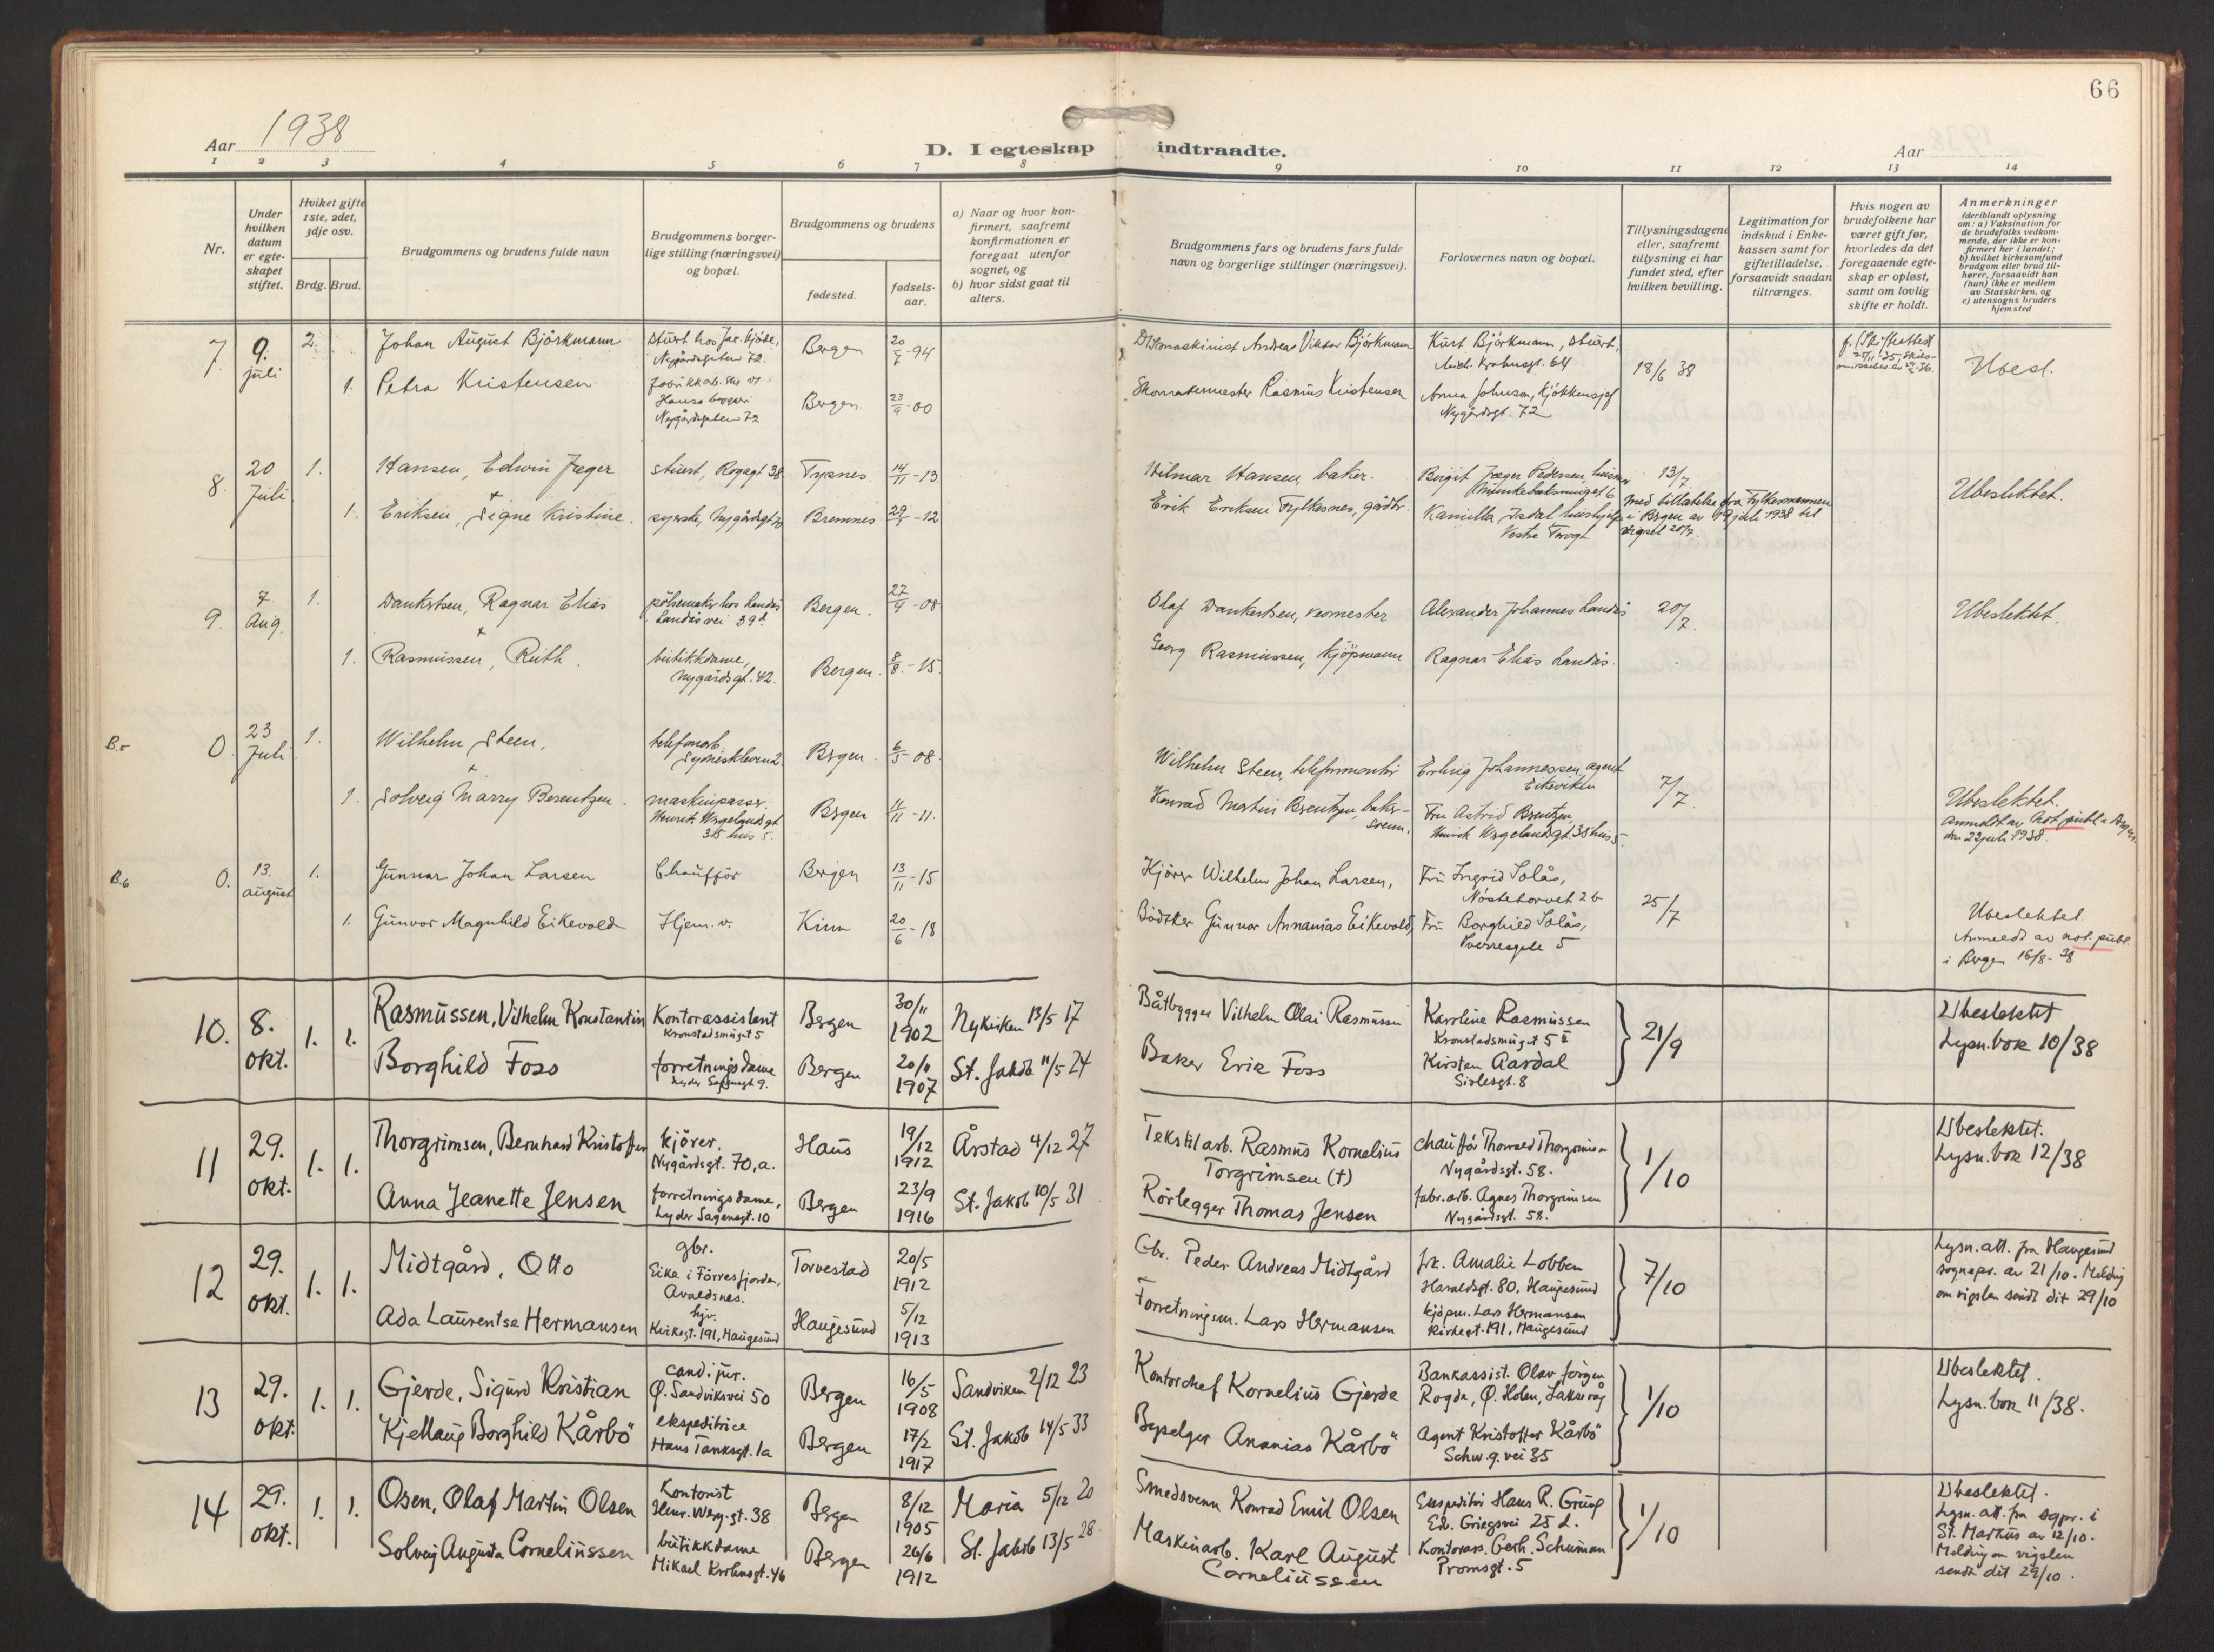 66
Aar 1938
D. I egteskap indtraadte.
Aar
1 2 3 4 5 6 7 8 9 10 11 12 13 14
Nr.
Under hvilken datum er egteskapet stiftet.
Hviket gifte 1ste, 2det, 3dje osv.
Brdg. Brud.
Brudgommens og brudens fulde navn
Brudgommens borgerlige stilling (næringsvei) og bopæl.
Brudgommens og brudens
fødested.
fødselsaar.
a) Naar og hvor konfirmert, saafremt konfirmationen er foregaat utenfor sognet, og
b) hvor sidst gaat til alters.
Brudgommens fars og brudens fars fulde navn og borgerlige stillinger (næringsvei).
Forlovernes navn og bopæl.
Tillysningsdagene eller, saafremt tillysning ei har fundet sted, efter hvilken bevilling.
Legitimation for indskud i Enkekassen samt for giftetilladelse, forsaavidt saadan tiltrænges.
Hvis nogen av brudefolkene har været gift før, hvorledes da det foregaaende egteskap er opløst, samt om lovlig skifte er holdt.
Anmerkninger
(deriblandt oplysning om: a) Vaksination for de brudefolks vedkommende, der ikke er konfirmert her i landet; b) hvilket kirkesamfund brudgom eller brud tilhører, forsaavidt han (hun) ikke er medlem av Statskirken, og c) utensogns bruders hjemsted
7. 9. juli 2. Johan August Björkmann
Nygårdsgaten 72. Bergen
Andreas Viktor Björkmann
Kurt Björkmann, stuert,
Mich. Krohnsgt. 64
18/6 38
Ubesl.
1. Petra Kristensen
Hansa bryggeri
Nygårdsgaten 72
Bergen 23/9-00
Skomakermester Rasmus Kristensen
Anna Johnsen, kjökkensjef
Nygårdsgt. 72
8. 20 Juli 1. Hansen, Edwin Jæger
stuert, Rosagt 38. Tysnes 14/11-13.
Hilmar Hansen, baker.
Birgit Jæger Pedersen,
13/7.
Ubeslektet.
1. Eriksen, Signe Kristine.
syerske, Nygårdsgt Bremnes 29/1-12
Erik Eriksen Fylkesnes, gårdbr.
Kamilla Isdal hushjelp
Vestre Torvgt.
Med tillatelse fra Fylkesmannen
i Bergen av 19 juli 1938 til
vigsel 20/7.
9. 7 Aug. 1. Dankertsen, Ragnar Elias
pölsemaker hos Landås
Landåsvei 39d. Bergen. 27/4-08
Olaf Dankertsen,
Alexander Johannes Landås
20/7.
Ubeslektet.
1. Rasmussen, Ruth.
butikkdame,
Nygårdsgt. 42. Bergen. 8/8-15.
Georg Rasmussen, kjöpmann
Ragnar Elias Landås.
B.5 0. 23 Juli 1. Wilhelm Steen,
telefonarb. Bergen. 6/5-08.
Wilhelm Steen, telefonmontör
Erling Johannessen, agent
Eikeviken
7/7.
1. Solveig Marry Berentzen.
maskinpasser.
Henrik Wergelandsgt
38 hus 5. Bergen 4/11-11.
Konrad Martin Berentzen, bakersvenn.
Fru Astrid Berentzen,
Henrik Wergelandsgt. 38 hus 5.
Ubeslektet.
Anmeldt av Not. publ. i Bergen
den 23 juli 1938.
B.6 0. 13. august 1. Gunnar Johan Larsen
Chaufför Bergen 13/11-15
Kjörer Wilhelm Johan Larsen,
Fru Ingrid Solås,
Nöstetorvet 2b
25/7
1. Gunvor Magnhild Eikevold
Hjem.v. Kinn 20/6-18
Bödtker Gunnar Annanias Eikevold,
Fru Borghild Solås,
Sverresgate 5
Ubeslektet.
Anmeldt av not. publ.
i Bergen 16/8-38
10. 8. okt. 1. 1. Rasmussen, Vilhelm Konstantin
Kontorassistent
Kronstadsmuget 5
Bergen 30/11 1902 Nykirken 13/5 17
Båtbygger Vilhelm Olai Rasmussen
Karoline Rasmussen
Kronstadsmuget 5 II
21/9
Ubeslektet
Lysn.bok 10/38
Borghild Foss
forretningsdame
Lyder Sagensgt 9.
Bergen 20/11 1907 St. Jakob 11/5 24
Baker Erik Foss
Kirsten Aardal
Sivlesgt. 8
11 29. okt. 1. 1. Thorgrimsen, Bernhard Kristoffer
kjörer.
Nygårdsgt. 70,a.
Haus 19/12 1912 Årstad 4/12 27
Tekstilarb. Rasmus Kornelius
Torgrimsen (†)
chaufför Thorvald Thorgrimsen
Nygårdsgt. 58.
1/10
Ubeslektet.
Lysn.bok 12/38
Anna Jeanette Jensen
forretningsdame,
Lyder Sagensgt. 10
Bergen 23/9 1916 St. Jakob 10/5 31
Rörlegger Thomas Jensen
fabr.arb. Agnes Thorgrimsen
Nygårdsgt. 58.
12 29. okt. 1. 1. Midtgård, Otto
gbr.
Eike i Förresfjorden,
Avaldsnes.
Torvestad 20/5 1912
Gbr. Peder Andreas Midtgård
frk. Amalie Lobben
Haraldsgt. 80, Haugesund
7/10
Lysn. att. fra Haugesund
sognepr. av 21/10. Melding
om vigslen sendt dit 29/10
Ada Laurentse Hermansen
hjv.
Kirkegt. 191, Haugesund
Haugesund 5/12 1913
Forretningsm. Lars Hermansen
kjöpm. Lars Hermansen
Kirkegt. 191, Haugesund
13 29. okt. 1. 1. Gjerde, Sigurd Kristian
cand. jur.
Ø. Sandviksvei 50
Bergen 16/5 1908 Sandviken 2/12 23
Kontorchef Kornelius Gjerde
Bankassist. Olav Jörgen
Rogde, Ø. Holen, Laksevåg
1/10
Ubeslektet.
Lysn.bok 11/38.
Kjellaug Borghild Kårbö
ekspeditrice
Hans Tanksgt. 1a
Bergen 17/2 1917 St. Jakob 14/5 33
Bypselger Ananias Kårbö
Agent Kristoffer Kårbö
Schw.g. vei 35
14 29. okt. 1. 1. Osen, Olaf Martin Olsen
Kontorist
Henr. Werg.gt. 38
Bergen 8/12 1905 Maria 5/12 20
Smedsvenn Konrad Emil Olsen
Ekspeditör Hans R. Grung
Edv. Griegsvei 25 d.
1/10
Ubeslektet.
Lysn. att. fra sgpr. i
St. Markus av 12/10.
Melding om vigslen
sendt dit 29/10.
Solveig Augusta Corneliussen
butikkdame
Mikael Krohnsgt. 46
Bergen 26/6 1912 St. Jakob 13/5 28
Maskinarb. Karl August
Corneliussen
Kontorass. Gerh. Schuman
Promsgt. 5